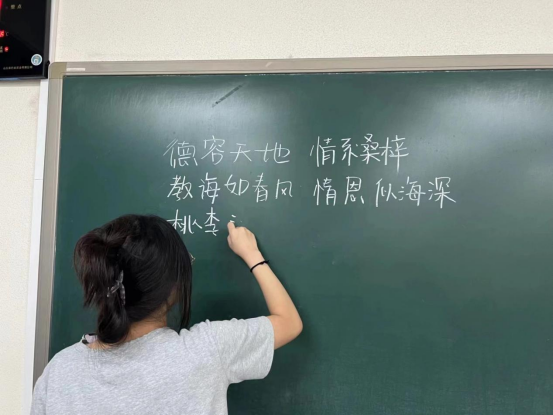 德容天地 情系桑梓
教海如春风 情恩似海深
桃李